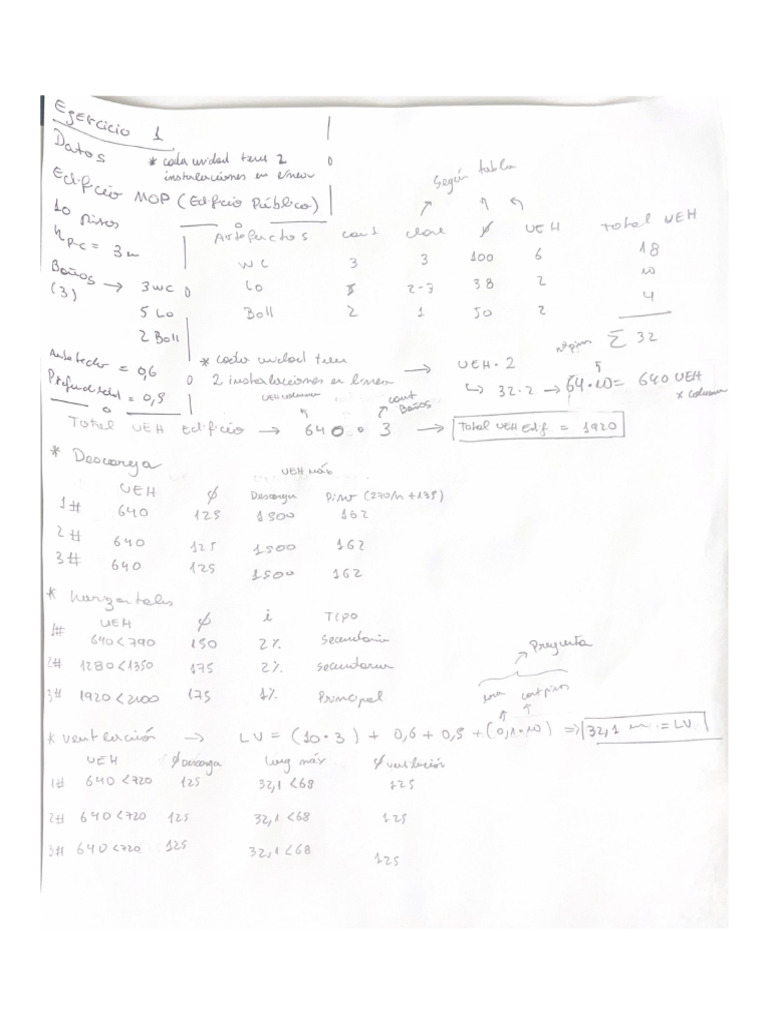 Ejercicio 1
Datos
* cada unidad tiene 2
instalaciones en línea
Edificio MOP (Edificio Público)
10 Pisos
h p-c = 3 m
Baños → 3 WC
(3)
5 Lo
2 Boll
Antetecho = 0,6
= 0,5
Según tabla
Artefactos cant clase ϕ UEH Total UEH
WC 3 3 100 6 18
Lo 5 2-3 38 2 10
Boll 2 1 50 2 4
Σ 32
* cada unidad tiene
2 instalaciones en línea → UEH · 2
nº pisos
↳ 32 · 2 → 64 · 10 = 640 UEH
x columna
UEH columna
cant
Baños
Total UEH Edificio → 640 · 3 → Total UEH Edif = 1920
* Descarga
UEH máx
UEH ϕ Descarga Piso (270/n + 135)
1# 640 125 1500 162
2# 640 125 1500 162
3# 640 125 1500 162
* horizontales
UEH ϕ i Tipo
1# 640 < 790 150 2% Secundaria
2# 1280 < 1350 175 2% Secundaria
3# 1920 < 2100 175 1% Principal
→ Pregunta
losa cant pisos
* ventilación → LV = (10 · 3) + 0,6 + 0,5 + (0,1 · 10) ⇒ 32,1 m = LV
UEH ϕ Descarga Long máx ϕ ventilación
1# 640 < 720 125 32,1 < 68 125
2# 640 < 720 125 32,1 < 68 125
3# 640 < 720 125 32,1 < 68 125